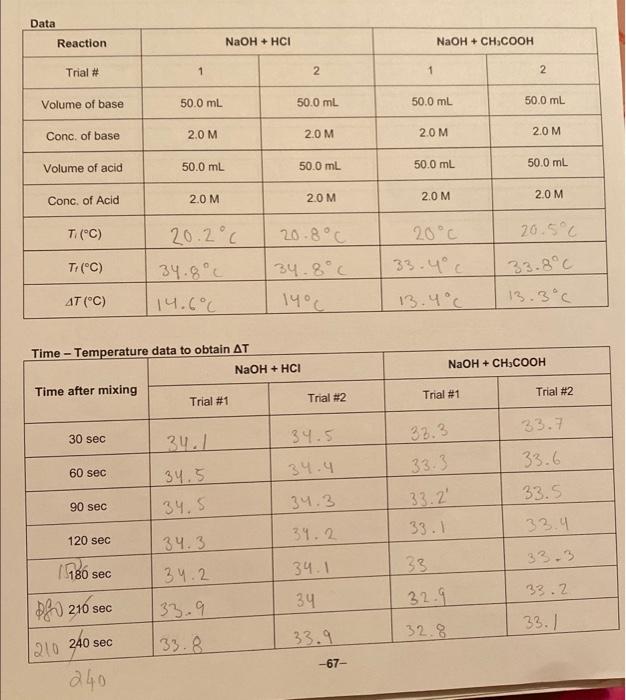 Data
Reaction NaOH + HCl NaOH + CH₃COOH
Trial # 1 2 1 2
Volume of base 50.0 mL 50.0 mL 50.0 mL 50.0 mL
Conc. of base 2.0 M 2.0 M 2.0 M 2.0 M
Volume of acid 50.0 mL 50.0 mL 50.0 mL 50.0 mL
Conc. of Acid 2.0 M 2.0 M 2.0 M 2.0 M
Tᵢ (°C) 20.2°C 20.8°C 20°C 20.5°C
T_f (°C) 34.8°C 34.8°C 33.4°C 33.8°C
ΔT (°C) 14.6°C 14°C 13.4°C 13.3°C
Time – Temperature data to obtain ΔT
Time after mixing NaOH + HCl NaOH + CH₃COOH
Trial #1 Trial #2 Trial #1 Trial #2
30 sec 34.1 34.5 33.3 33.7
60 sec 34.5 34.4 33.3 33.6
90 sec 34.5 34.3 33.2 33.5
120 sec 34.3 34.2 33.1 33.4
180 sec 34.2 34.1 33 33.3
210 sec 33.9 34 32.9 33.2
210 240 sec 33.8 33.9 32.8 33.1
240
–67–